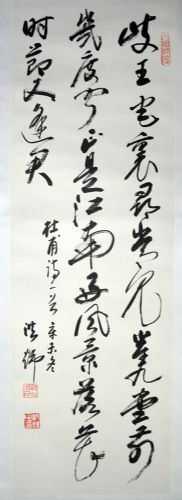 岐王宅裏尋常見崔九堂前
幾度聞正是江南好風景落花
时節又逢君
杜甫詩一首 辛未冬